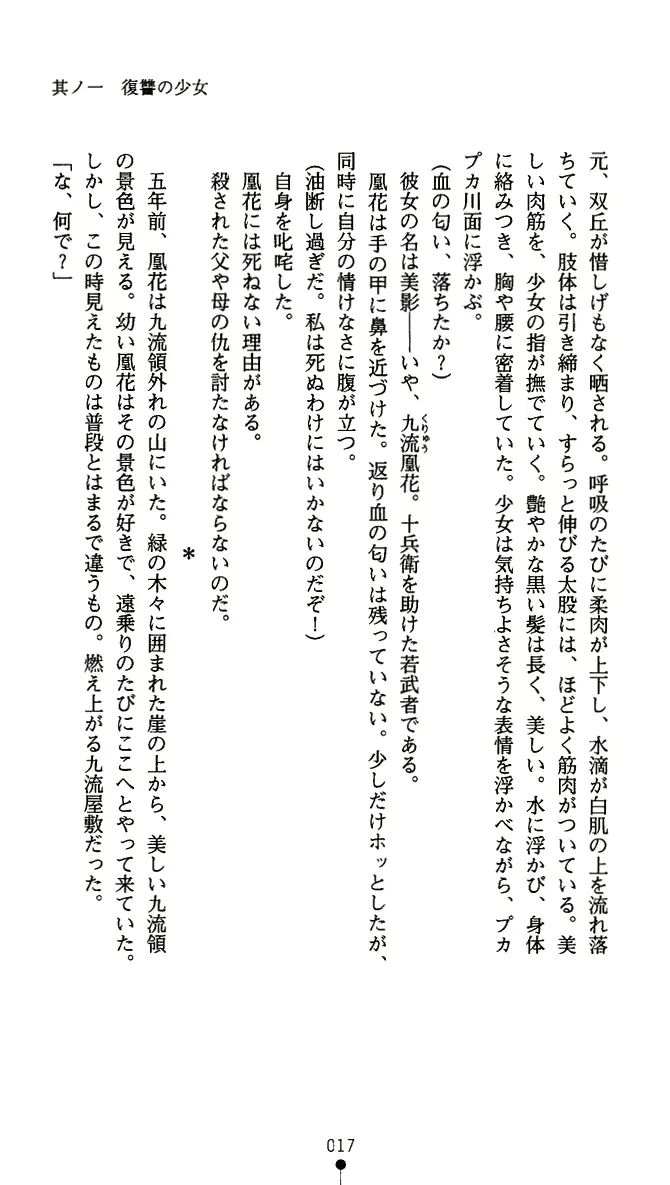 其ノ一　復讐の少女
元、双丘が惜しげもなく晒される。呼吸のたびに柔肉が上下し、水滴が白肌の上を流れ落
ちていく。肢体は引き締まり、すらっと伸びる太股には、ほどよく筋肉がついている。美
しい肉筋を、少女の指が撫でていく。艶やかな黒い髪は長く、美しい。水に浮かび、身体
に絡みつき、胸や腰に密着していた。少女は気持ちよさそうな表情を浮かべながら、プカ
プカ川面に浮かぶ。
（血の匂い、落ちたか？）
彼女の名は美影――いや、九流凰花。十兵衛を助けた若武者である。
くりゅう
凰花は手の甲に鼻を近づけた。返り血の匂いは残っていない。少しだけホッとしたが、
同時に自分の情けなさに腹が立つ。
（油断し過ぎだ。私は死ぬわけにはいかないのだぞ！）
自身を叱咤した。
凰花には死ねない理由がある。
殺された父や母の仇を討たなければならないのだ。
＊
五年前、凰花は九流領外れの山にいた。緑の木々に囲まれた崖の上から、美しい九流領
の景色が見える。幼い凰花はその景色が好きで、遠乗りのたびにここへとやって来ていた。
しかし、この時見えたものは普段とはまるで違うもの。燃え上がる九流屋敷だった。
「な、何で？」
017